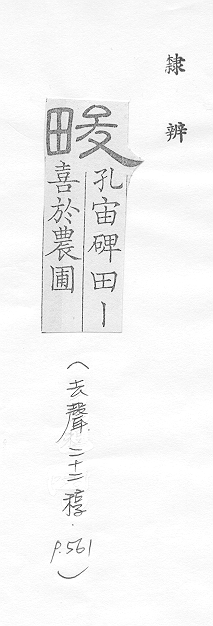 隸辨
畯
孔宙碑田丨
喜於農圃
(去聲二十二稕.p.561)